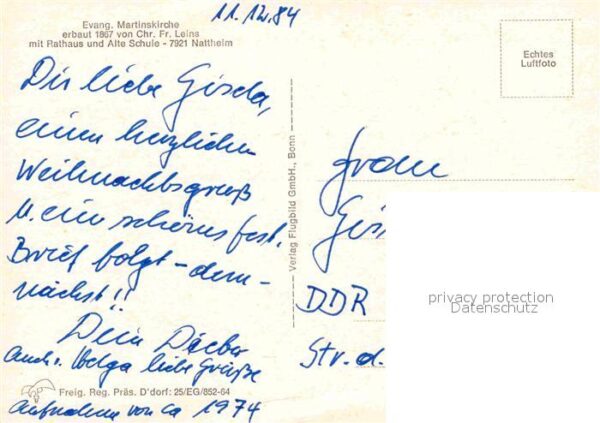 11.12.84
Evang. Martinskirche
erbaut 1867 von Chr. Fr. Leins
mit Rathaus und Alte Schule - 7921 Nattheim
Echtes
Luftfoto
Dir liebe Gisela,
einen herzlichen
Weihnachtsgruß
u. ein schönes Fest.
Brief folgt - dem-
nächst!!
Dein Dieter
Auch v. Helga liebe Grüße
Freig. Reg. Präs. D'dorf: 25/EG/852-64
Aufnahme von ca 1974
Verlag Flugbild GmbH., Bonn
Frau
Gis
DDR
Str. d.
privacy protection
Datenschutz